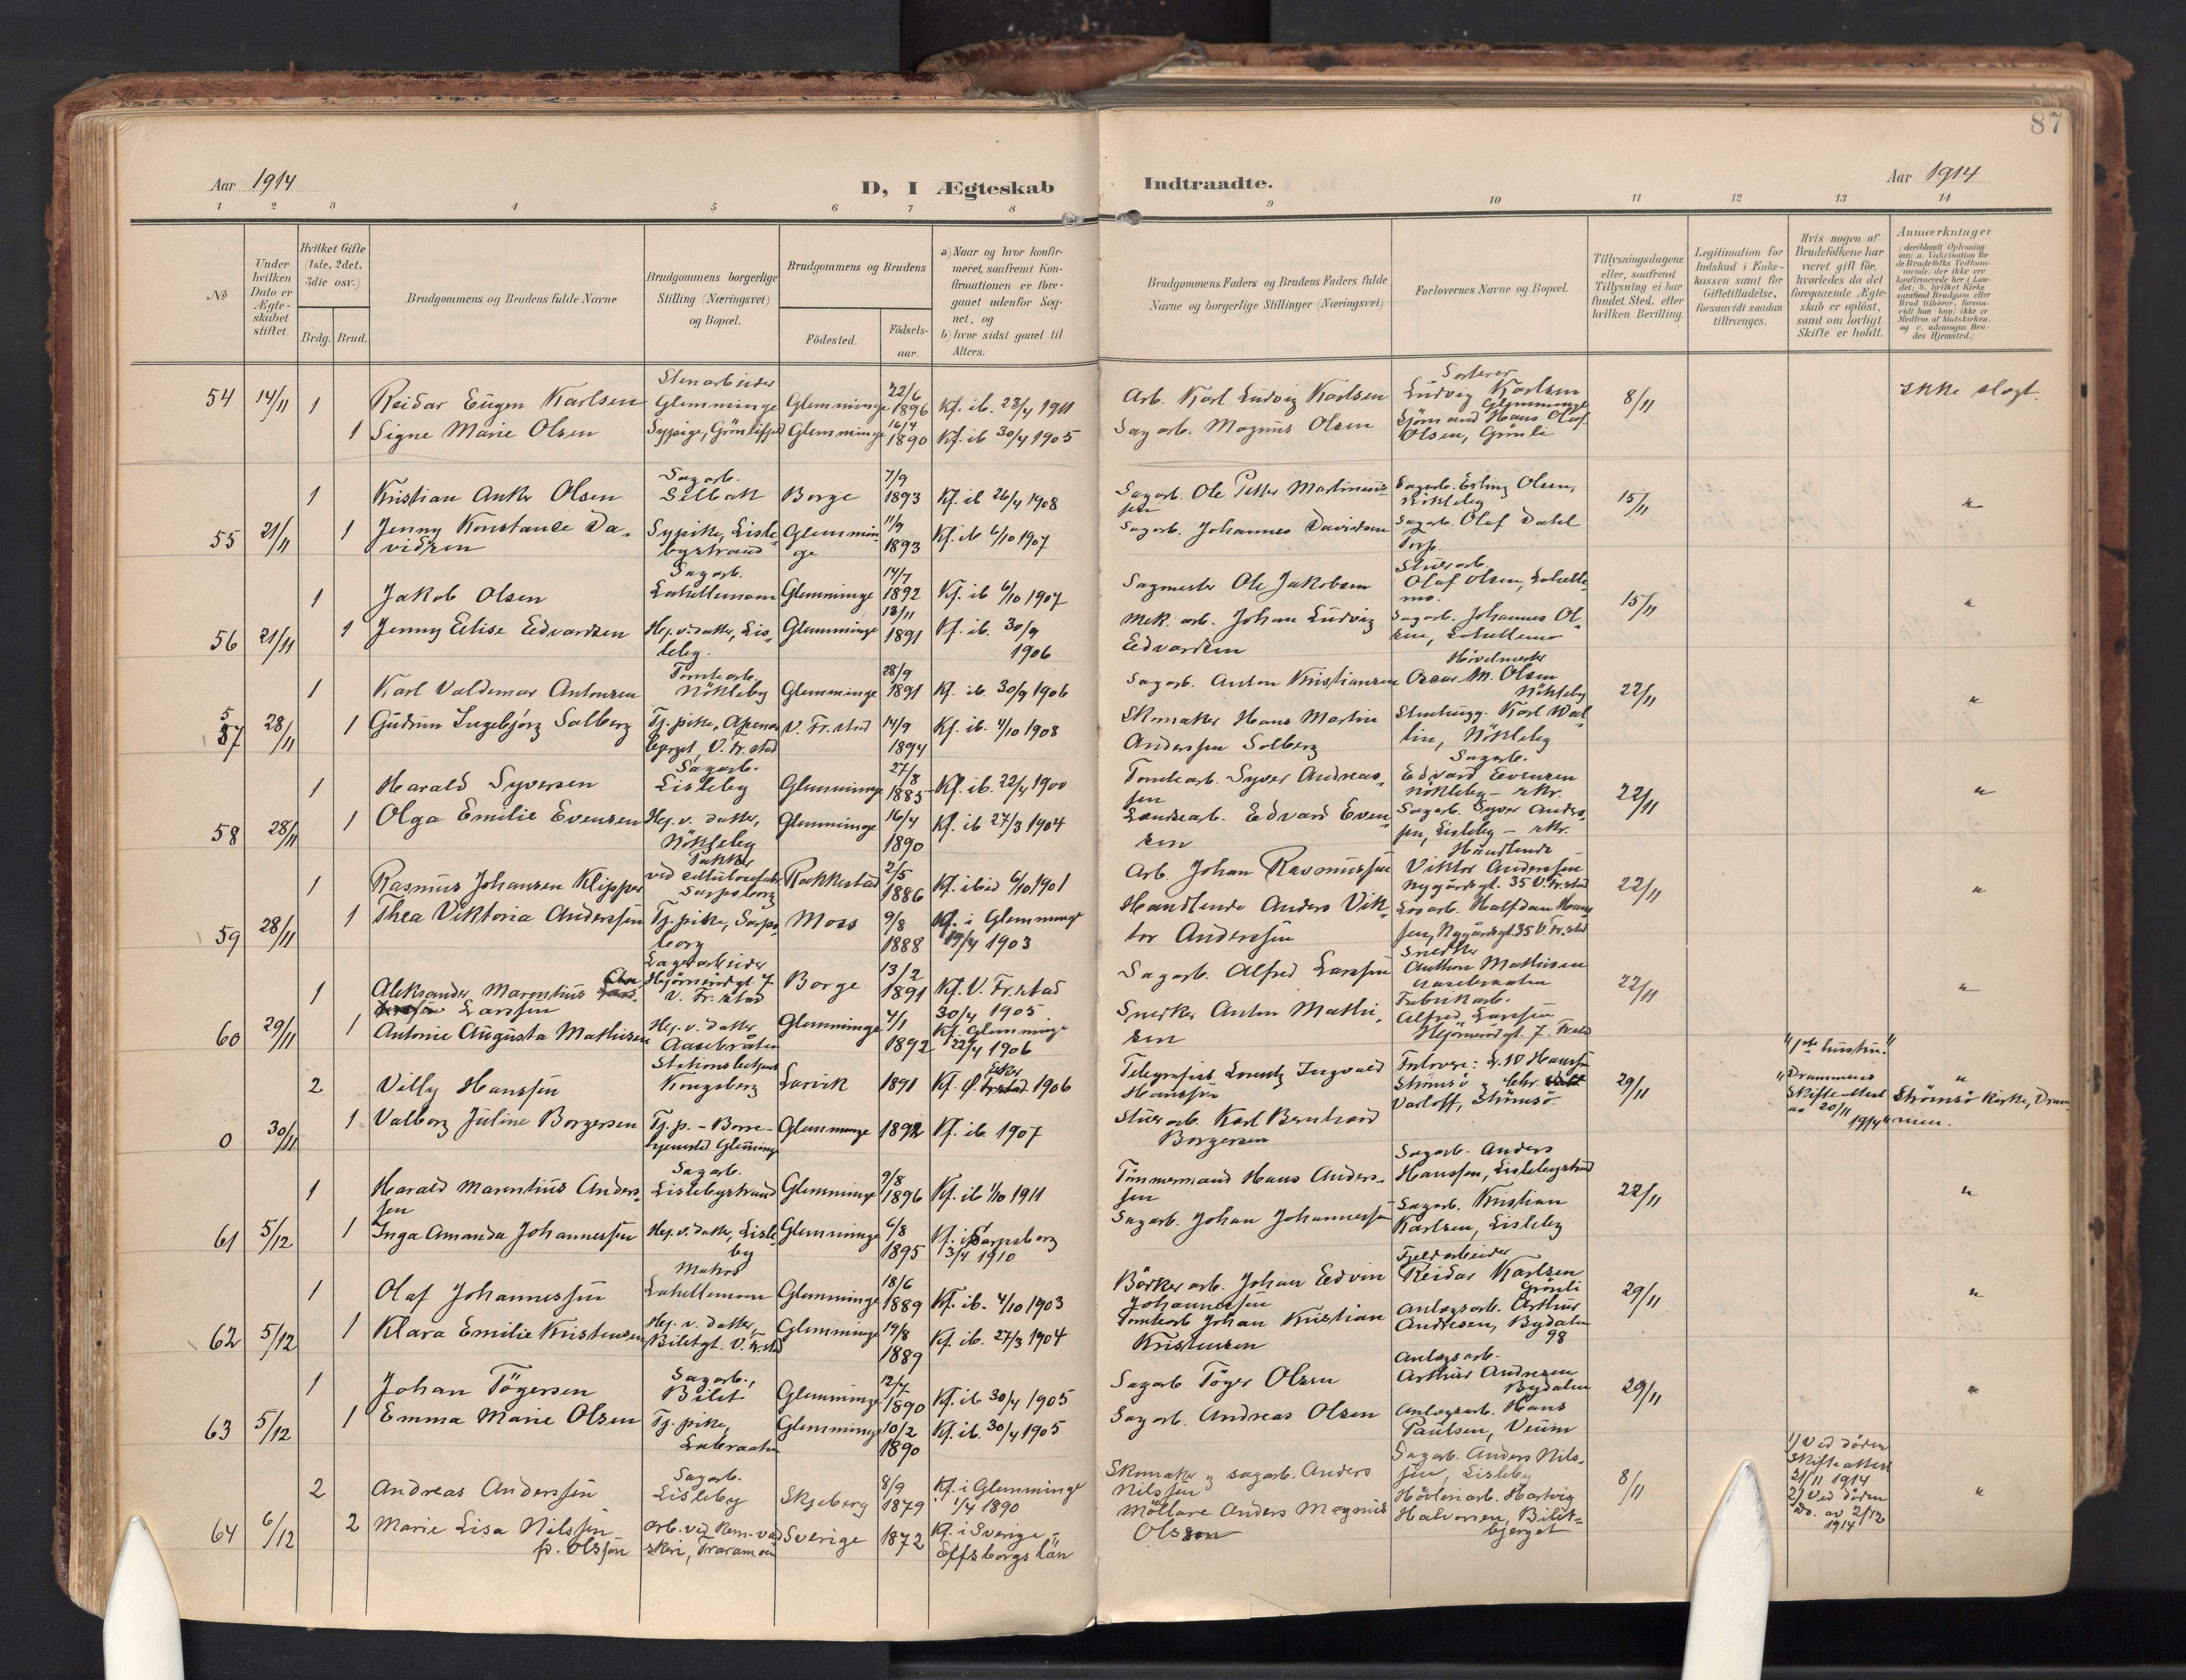 87
Aar 1914
D, I Ægteskab
Indtraadte.
Aar 1914
1 2 3 4 5 6 7 8 9 10 11 12 13 14
№
Under hvilken Dato er Ægteskabet stiftet.
Hvilket Gifte (1ste, 2det, 3die osv.)
Brdg. Brud.
Brudgommens og Brudens fulde Navne
Brudgommens borgerlige Stilling (Næringsvei) og Bopæl.
Brudgommens og Brudens
Födested.
Födsels-aar.
a) Naar og hvor konfirmeret, saafremt Konfirmationen er foregaaet udenfor Sognet, og
b) hvor sidst gaaet til Alters.
Brudgommens Faders og Brudens Faders fulde Navne og borgerlige Stillinger (Næringsvei)
Forlovernes Navne og Bopæl.
Tillysningsdagene eller, saafremt Tillysning ei har fundet Sted, efter hvilken Bevilling.
Legitimation for Indskud i Enkekassen samt for Giftetilladelse, forsaavidt saadan tiltrænges.
Hvis nogen af Brudefolkene har været gift för, hvorledes da det foregaaende Ægteskab er oplöst, samt om lovligt Skifte er holdt.
Anmærkninger
(deriblandt Oplysning om: a. Vaccination for de Brudefolks Vedkommende, der ikke ere konfirmerede her i Landet; b. hvilket Kirkesamfund Brudgom eller Brud tilhörer, forsaavidt han (hun) ikke er Medlem af Statskirken, og c. udensogns Brudes Hjemsted.)
54 14/11 1 Reidar Eugen Karlsen Stenarbeider Glemminge Glemminge 22/6 1896 Kf. ib. 23/4 1911 Arb. Karl Ludvig Karlsen Sorterer Ludvig Karlsen Glemminge 8/11 ikke slegt.
1 Signe Marie Olsen Sypige, Glemminge 16/4 1890 Kf. ib 30/4 1905 Sagarb. Magnus Olsen Sjömand Hans Olaf Olsen, Grönli
1 Kristian Anker Olsen Sagarb. Selbak Borge 7/9 1893 Kf. ib 26/4 1908 Sagarb. Ole Petter Martiniussen Sagarb. Erling Olsen, 15/11 "
55 21/11 1 Jenny Konstance Davidsen Sypike, Lislebystrand Glemminge 11/9 1893 Kf. ib 6/10 1907 Sagarb. Johannes Davidsen Sagarb. Olaf Dahl Torp.
1 Jakob Olsen Sagarb. Lahellemoen Glemminge 14/7 1892 Kf. ib 6/10 1907 Sagmester Ole Jakobsen Stuerarb. Olaf Olsen, Lahellemo. 15/11 "
56 21/11 1 Jenny Elise Edvardsen Hj. v. datter, Lisleby. Glemminge 13/11 1891 Kf. ib. 30/9 1906 Mek. arb. Johan Ludvig Edvardsen Sagarb. Johannes Olsen, Lahellemo
1 Karl Valdemar Antonsen Tomtearb. Nökleby Glemminge 28/9 1891 Kf. ib. 30/9 1906 Sagarb. Anton Kristiansen Hövelmester Oscar M. Olsen Nökleby 22/11 "
57 28/11 1 Gudrun Ingebjörg Solberg Tj. pike, V. Fr.stad V. Fr.stad 14/9 1894 Kf. ib. 4/10 1908 Skomaker Hans Martin Anderssen Solberg Stenhugg. Karl Wallin, Nökleby
1 Harald Syversen Sagarb. Lisleby Glemminge 27/8 1885 Kf. ib. 22/4 1900 Tomtearb. Syver Andreassen Sagarb. Edvard Evensen Nökleby – rkr. 22/11 "
58 28/11 1 Olga Emilie Evensen Hj. v. datter, Nökleby Glemminge 16/4 1890 Kf. ib 27/3 1904 Edvard Evensen Sagarb. Syver Anderssen, Lisleby – rkr.
1 Rasmus Johansen Klipper Pakker ved Cellulosefabr. Sarpsborg Rakkestad 2/5 1886 Kf. ibid 6/10 1901 Arb. Johan Rasmussen Handlende Viktor Anderssen Nygårdsgt. 35 V. Fr.stad 22/11 "
59 28/11 1 Thea Viktoria Anderssen Tj. pike, Sarpsborg Moss 9/8 1888 Kf. i Glemminge 19/4 1903 Handlende Anders Viktor Anderssen Halfdan Hanssen, Nygårdsgt. 35 V. Fr.stad
1 Aleksander Marentius Larssen Lagerarbeider 7 V. Fr.stad Borge 13/2 1891 Kf. V. Fr.stad 30/4 1905. Sagarb. Alfred Larssen Snedker Anthon Mathisen Aasebraaten 22/11 "
60 29/11 1 Antonie Augusta Mathisen Hj. v. datter Aasebråten Glemminge 4/1 1892 Kf. Glemminge 22/4 1906 Snedker Anton Mathisen Fabrikarb. Alfred Larssen 7. Fr.stad
2 Villy Hanssen Stationsbetjent Kongsberg Larvik 1891 Kf. Ø. Eker 1906 Telegrafist Lorentz Ingvald Hanssen Forlovere: L. W Hanssen Strömsö og Chr. Varloff, Strömsö 29/11 "1ste hustru." "Drammens Skifteattest av 20/11 1914" " Strömsö Kirke, Drammen.
0 30/11 1 Valborg Juline Borgersen Tj. p. – Borre – hjemsted Glemminge Glemminge 1892 Kf. ib 1907 Stuerarb. Karl Bernhard Borgersen
1 Harald Marentius Anderssen Sagarb. Lislebystrand Glemminge 9/8 1896 Kf. ib 1/10 1911 Tömmermand Hans Anderssen Sagarb. Anders Hanssen, Lislebystrand 22/11 "
61 5/12 1 Inga Amanda Johannessen Hj. v. datter, Lisleby Glemminge 6/8 1895 Kf. i Sarpsborg 3/4 1910 Sagarb. Johan Johannessen Sagarb. Kristian Karlsen, Lisleby
1 Olaf Johannessen Matros Lahellemoen Glemminge 18/6 1889 Kf. ib. 4/10 1903 Börkerarb. Johan Edvin Johannessen Fjeldarbeider Reidar Karlsen Grönli 29/11 "
62 5/12 1 Klara Emilie Kristensen Hj. v. datter, Biletgt. V. Fr.stad Glemminge 19/8 1889 Kf. ib. 27/3 1904 Tomtearb Johan Kristian Kristensen Anlægsarb. Arthur Andresen, Bydalen 98
1 Johan Tögersen Sagarb., Bilet Glemminge 12/4 1890 Kf. ib 30/4 1905 Sagarb Töger Olsen Anlægsarb. Arthur Andresen Bydalen 29/11 "
63 5/12 1 Emma Marie Olsen Tj. pike, Glemminge 10/2 1890 Kf. ib. 30/4 1905 Sagarb. Andreas Olsen Anlægsarb. Hans Paulsen, Veum
2 Andreas Anderssen Sagarb. Lisleby Skjeberg 8/9 1879 Kf. i Glemminge 1/4 1890 Skomaker og sagarb. Anders Nilssen Sagarb. Anders Nilssen, Lisleby 8/11 1) Ved döden Skifteattest 21/11 1914 2) Ved döden Do. av 2/12 1914 "
64 6/12 2 Marie Lisa Nilssen f. Olsson arb. ved Kem. vaskeri, Traramoen Sverige 1872 Kf. i Sverige, Elfsborgs län Möllare Anders Magnus Olsson Hövleriarb. Hartvig Halvorsen, Biletbjerget